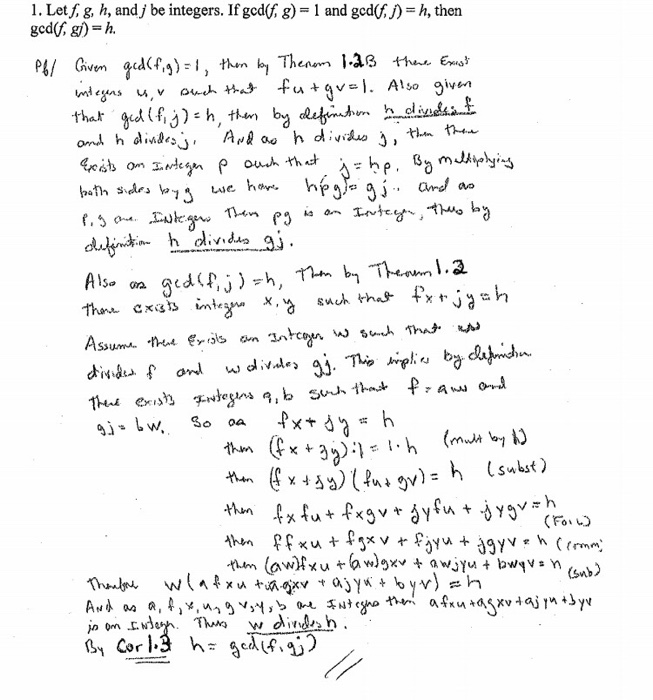 1. Let f, g, h, and j be integers. If gcd(f, g) = 1 and gcd(f, j) = h, then
gcd(f, gj) = h.
Pf/ Given gcd(f,g)=1, then by Theorem 1.2B there Exist
integers u, v such that fu+gv=1. Also given
that gcd(f,j)=h, then by definition h divides f
and h divides j. And as h divides j, then there
Exists an Integer p such that j=hp. By multiplying
both sides by g we have h(pg)=gj. and as
p,g are Integers Then pg is an Integer, thus by
definition h divides gj.
Also as gcd(f,j)=h, Then by Theorem 1.2
there exists integers x,y such that fx+jy=h
Assume there Exists an Integer w such that
divides f and w divides gj. This implies by definition
there exists Integers a,b such that f=aw and
gj=bw. So as fx+jy=h
then (fx+jy)·1=1·h (mult by 1)
then (fx+jy)(fu+gv)=h (subst)
then fxfu+fxgv+jyfu+jygv=h
(FOIL)
then ffxu+fgxv+fjyu+jgyv=h (comm)
then (aw)fxu+(aw)gxv+awjyu+bwyv=h
(sub)
Therefore w(afxu+agxv+ajyu+byv)=h
And as a,f,x,u,g,v,j,y,b are Integers then afxu+agxv+ajyu+byv
is an Integer. Thus w divides h.
By Cor 1.3 h=gcd(f,gj)